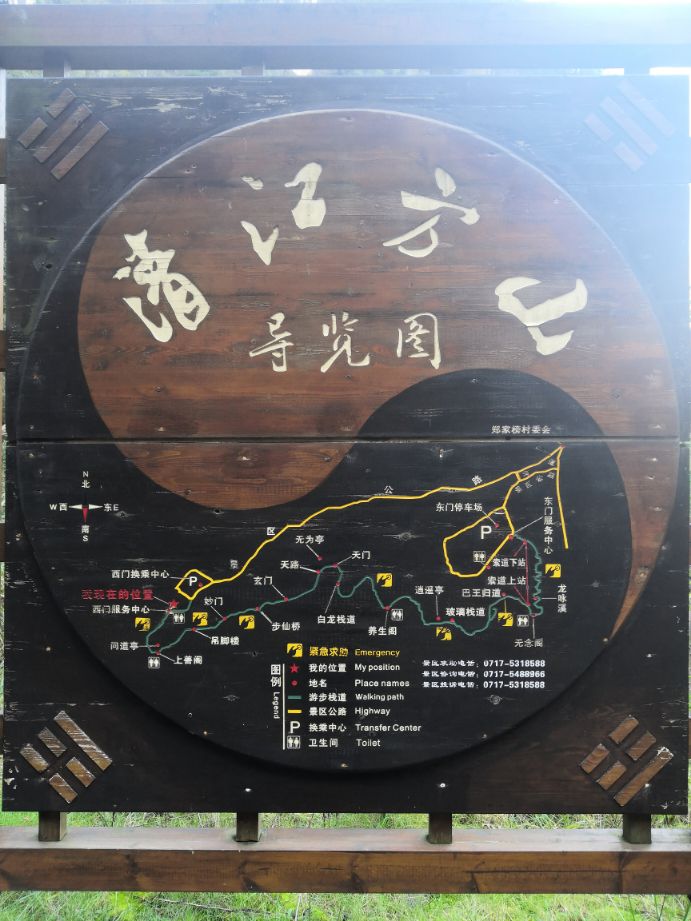 清江方山
导览图
郑家榜村委会
N
北
W西 东E
南
S
景区公路
东门停车场
P
东门服务中心
索道下站
索道上站
巴王归道
龙咏溪
无念阁
逍遥亭
玻璃栈道
养生阁
天门
无为亭
天路
白龙栈道
玄门
步仙桥
妙门
吊脚楼
西门换乘中心
P
我现在的位置
西门服务中心
问道亭
上善阁
图例
Legend
紧急求助 Emergency
我的位置 My position
地名 Place names
游步栈道 Walking path
景区公路 Highway
P 换乘中心 Transfer Center
卫生间 Toilet
景区求助电话：0717-5318588
景区咨询电话：0717-5488966
景区投诉电话：0717-5318588